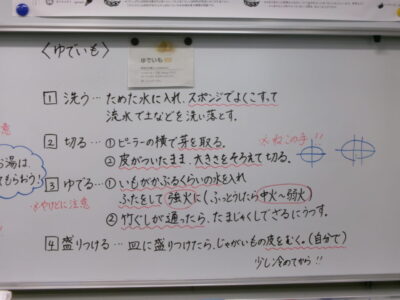 〈ゆでいも〉
ゆでいも
1 洗う… ためた水に入れ、スポンジでよくこすって
流水で土などを洗い落とす。
2 切る… ①ピーラーの横で芽を取る。
※ねこの手!!
②皮がついたまま、大きさをそろえて切る。
お湯は、
てもらおう!
3 ゆでる… ①いもがかぶるくらいの水を入れ
ふたをして強火に(ふっとうしたら中火〜弱火)
※やけどに注意
②竹ぐしが通ったら、たまじゃくしでざるにうつす。
4 盛りつける… 皿に盛りつけたら、じゃがいもの皮をむく。(自分で)
少し冷めてから!!